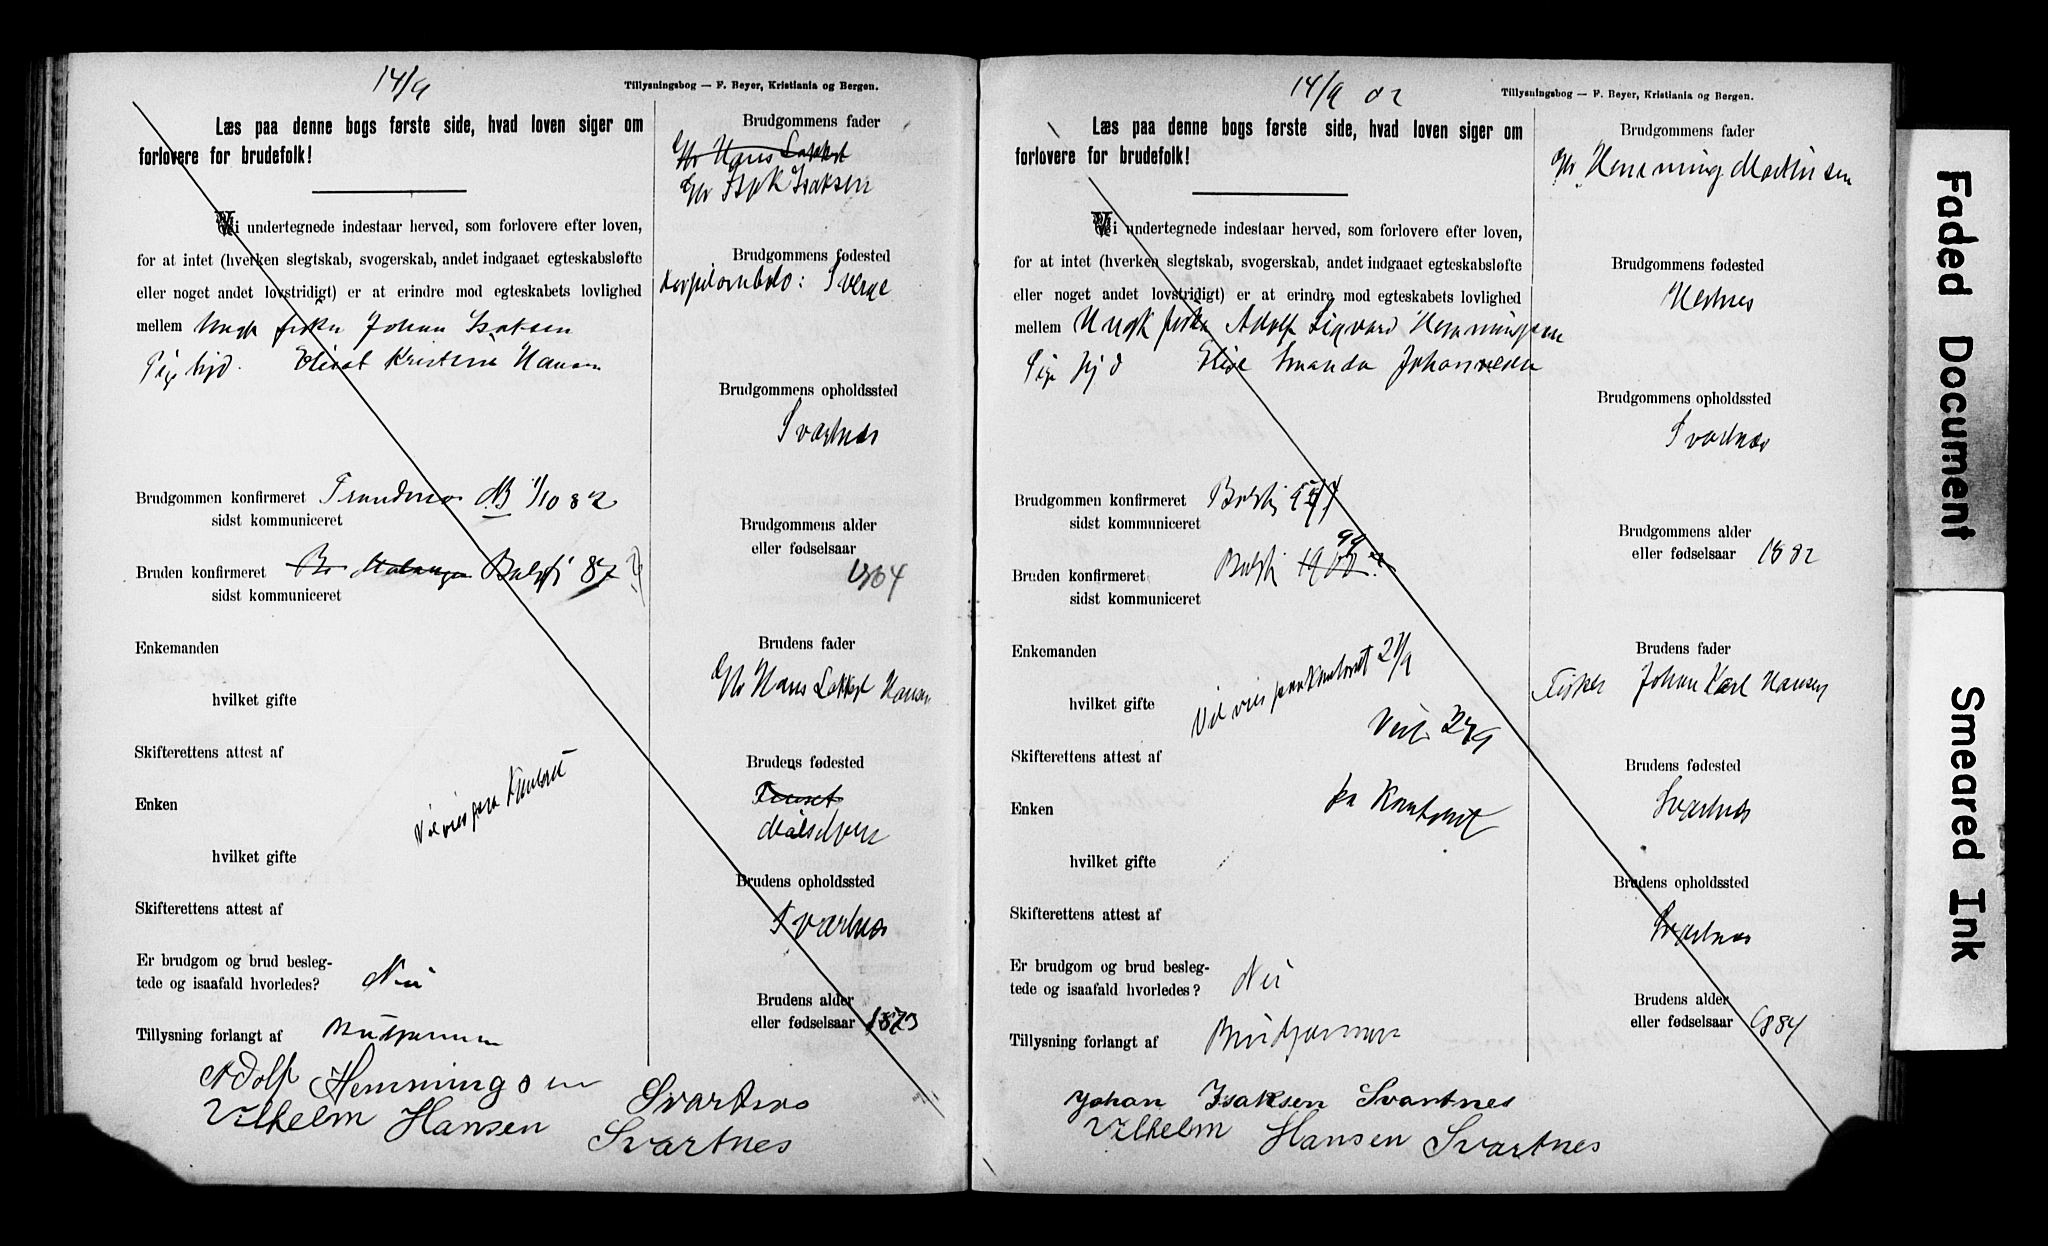 14/9
Tillysningsbog — F. Beyer, Kristiania og Bergen.
Læs paa denne bogs første side, hvad loven siger om
forlovere for brudefolk!
Vi undertegnede indestaar herved, som forlovere efter loven,
for at intet (hverken slegtskab, svogerskab, andet indgaaet egteskabsløfte
eller noget andet lovstridigt) er at erindre mod egteskabets lovlighed
mellem Johan Isaksen
Kristine Hansen
Brudgommen konfirmeret 82
sidst kommuniceret
Bruden konfirmeret
sidst kommuniceret
Enkemanden
hvilket gifte
Skifterettens attest af
Enken
hvilket gifte
Skifterettens attest af
Er brudgom og brud besleg-
tede og isaafald hvorledes? Nei
Tillysning forlangt af Brudgommen
Brudgommens fader
Isak Isaksen
Brudgommens fødested
Sverge
Brudgommens opholdssted
Svartnes
Brudgommens alder
eller fødselsaar
Brudens fader
Hans Hansen
Brudens fødested
Målselven
Brudens opholdssted
Svartnes
Brudens alder
eller fødselsaar 1873
Adolf Hemmingsen Svartnes
Vilhelm Hansen Svartnes
14/9 02
Tillysningsbog — F. Beyer, Kristiania og Bergen.
Læs paa denne bogs første side, hvad loven siger om
forlovere for brudefolk!
Vi undertegnede indestaar herved, som forlovere efter loven,
for at intet (hverken slegtskab, svogerskab, andet indgaaet egteskabsløfte
eller noget andet lovstridigt) er at erindre mod egteskabets lovlighed
mellem Ungk fisker Adolf Sigvard Hemmingsen
Elise Amanda
Brudgommen konfirmeret
sidst kommuniceret
Bruden konfirmeret
sidst kommuniceret
Enkemanden
hvilket gifte
Vil vies paa kontoret
Skifterettens attest af
Enken
hvilket gifte
Skifterettens attest af
Er brudgom og brud besleg-
tede og isaafald hvorledes? Nei
Tillysning forlangt af Brudgommen
Brudgommens fader
Hemming Martinsen
Brudgommens fødested
Brudgommens opholdssted
Svartnes
Brudgommens alder
eller fødselsaar 1882
Brudens fader
Fisker Johan Karl Hansen
Brudens fødested
Svartnes
Brudens opholdssted
Svartnes
Brudens alder
eller fødselsaar 1884
Johan Isaksen Svartnes
Vilhelm Hansen Svartnes
Faded Document
Smeared Ink